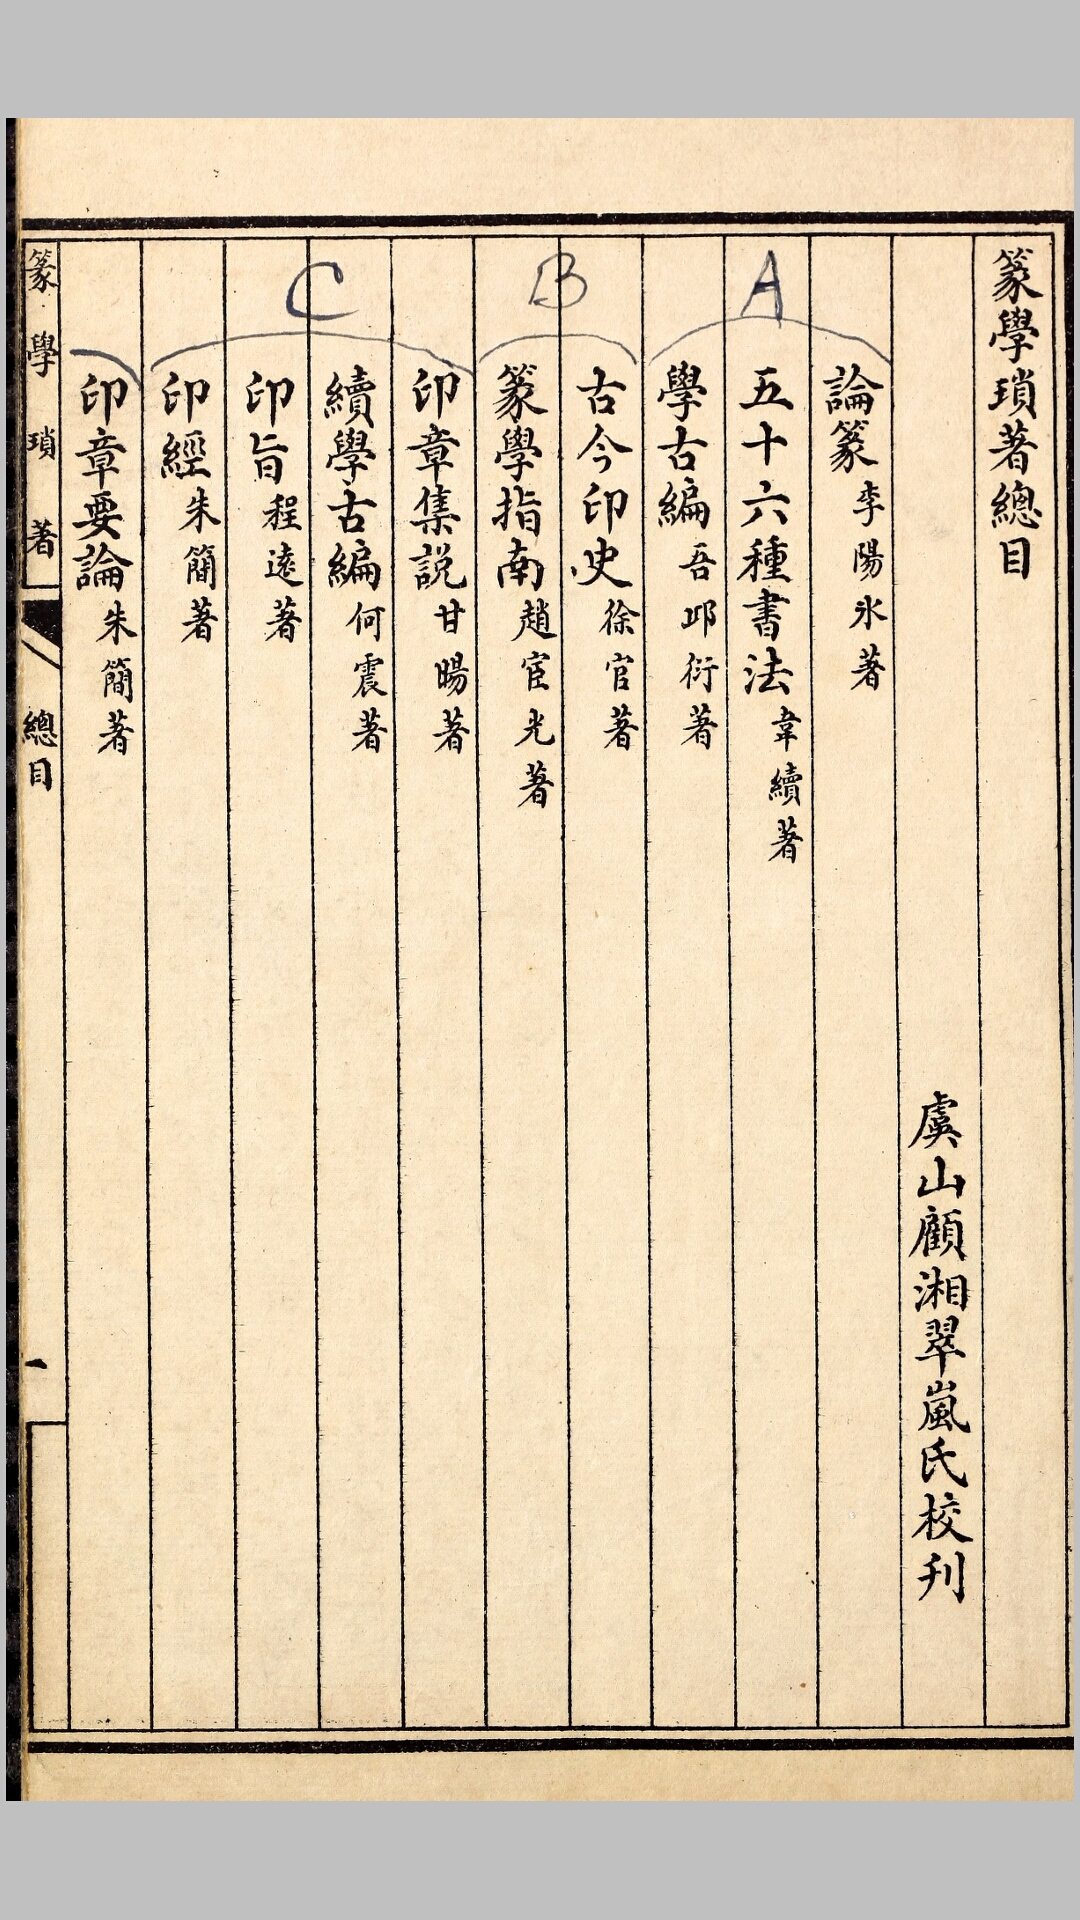 篆學瑣著總目
虞山顧湘翠嵐氏校刋
A
論篆李陽氷著
五十六種書法韋續著
學古編吾邱衍著
B
古今印史徐官著
篆學指南趙宧光著
C
印章集説甘暘著
續學古編何震著
印旨程遠著
印經朱簡著
印章要論朱簡著
篆學瑣著 總目 一